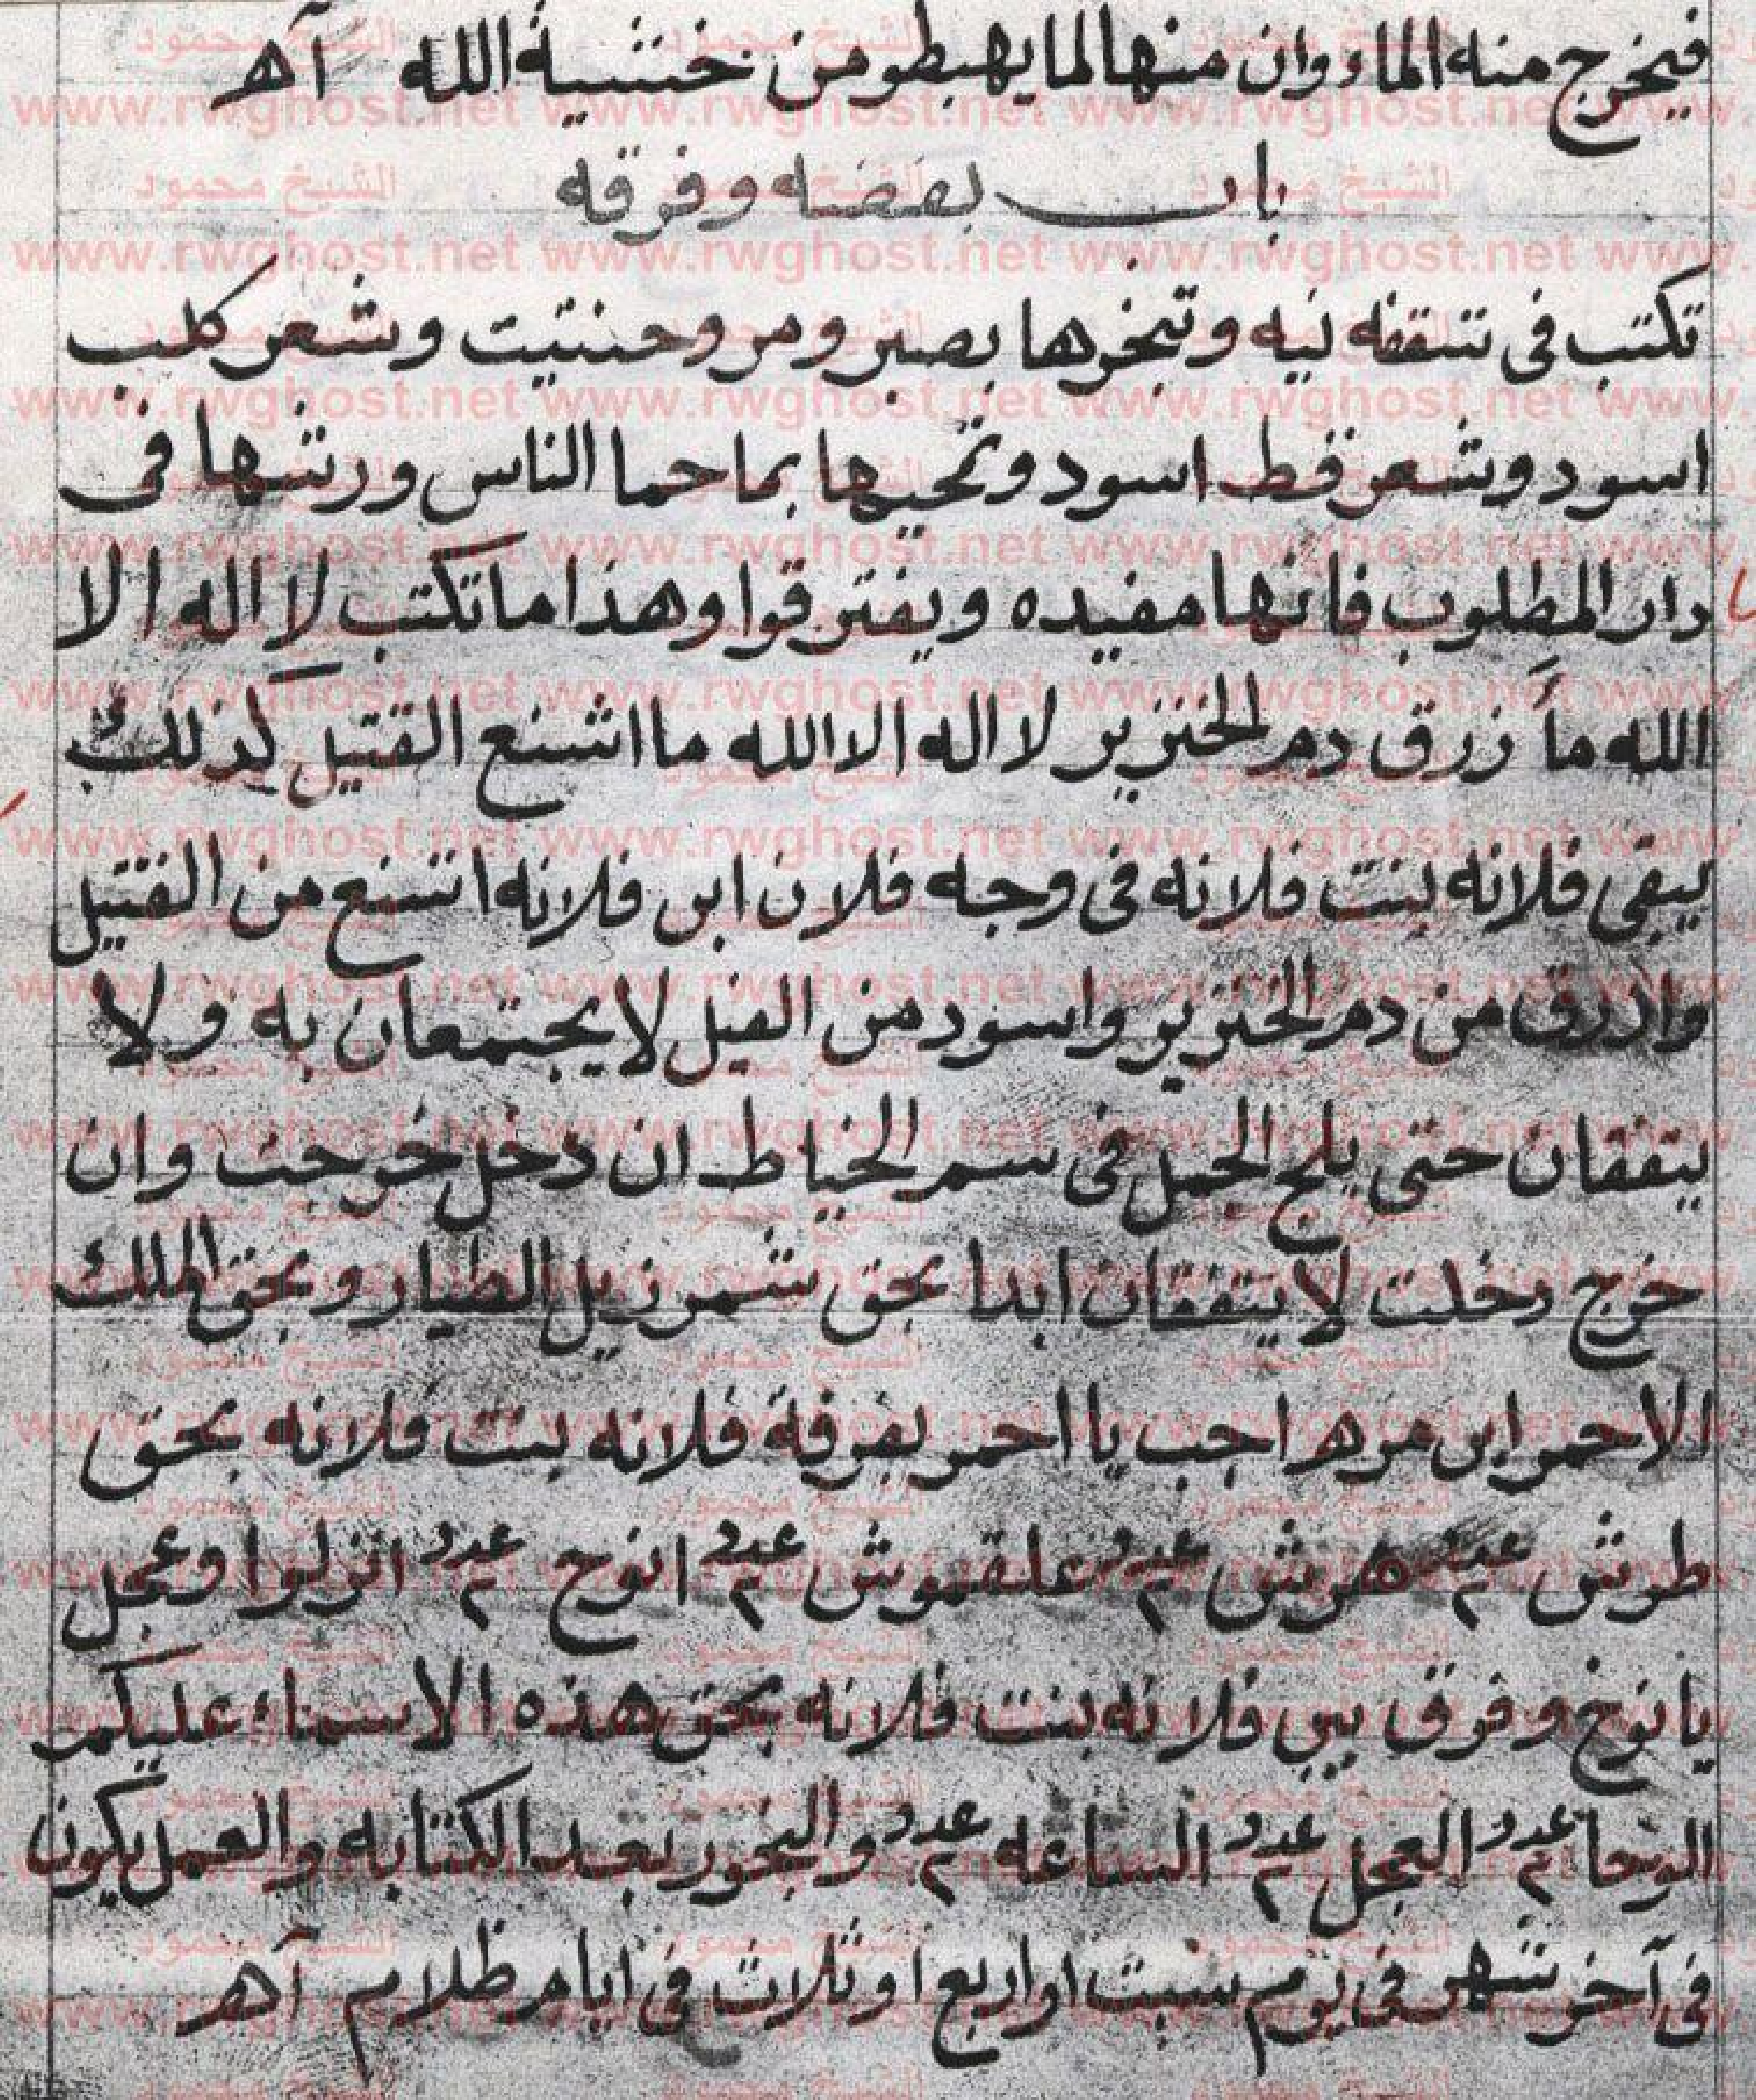 فيخرج منه الماء وان منها لما يهبطو من خشية الله آهـ
باب بغضه وفرقه
تكتب فى شقفه نيه وتبخرها بصبر ومر وحنتيت وشعر كلب
اسود وشعر قط اسود وتمحيها بما حما الناس ورشها فى
دار المطلوب فانها مفيده ويفترقوا وهذا ما تكتب لا اله الا
الله ما أزرق دم الخنزير لا اله الا الله ما اشنع القتيل كذلك
يبقى فلانه بنت فلانه فى وجه فلان ابن فلانه اشنع من القتيل
وازرق من دم الخنزير واسود من الفيل لا يجتمعان به ولا
يتفقان حتى يلج الجمل فى سم الخياط ان دخل خرجت وان
خرج دخلت لا يتفقان ابدا بحق شمرزيل الطيار وبحق الملك
الاحمر ابن مره اجب يا احمر بفرقة فلانه بنت فلانه بحق
طرش عدد ٢ هرش عدد ٢ علقموش عدد ٢ انوخ عدد ٢ انزلوا وعجل
يا نوخ وفرق بين فلانه بنت فلانه بحق هذه الاسماء عليكم
الوحا عدد ٢ العجل عدد ٢ الساعه عدد ٢ والبخور بعد الكتابه والعمل يكون
فى آخر شهر فى يوم سبت او اربع او ثلاث فى ايام ظلام آهـ
www.rwghost.net
الشيخ محمود